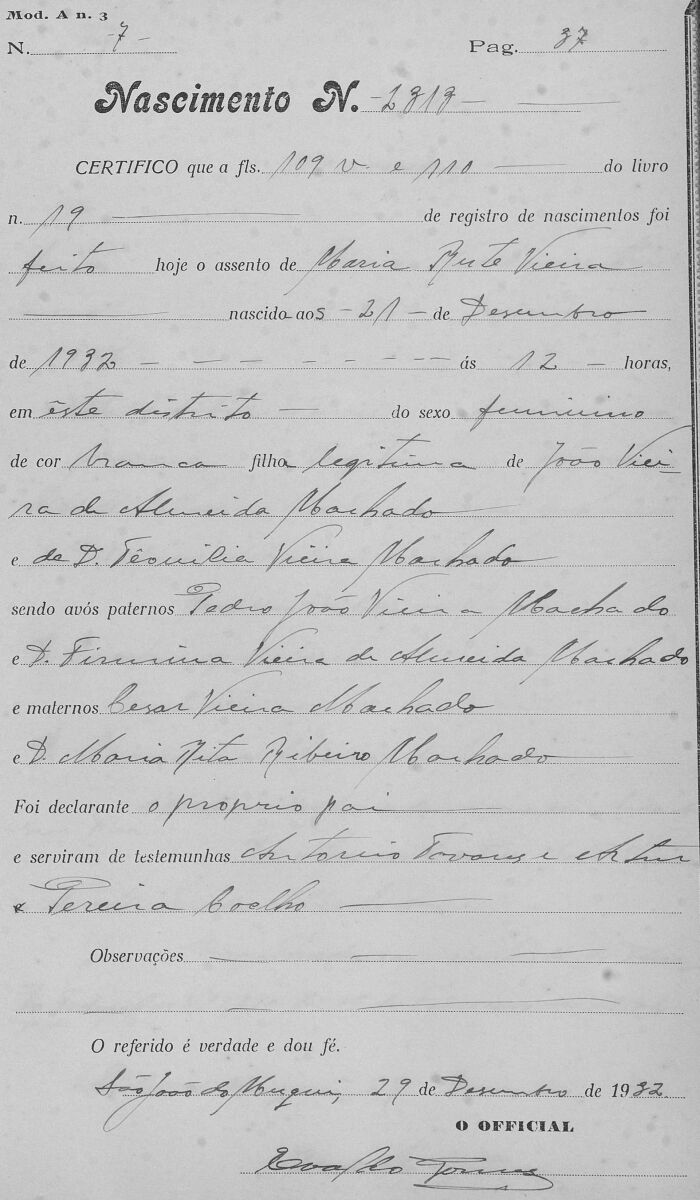 Mod. A n. 3
N. -7- Pag. 37
Nascimento N. -2313-
CERTIFICO que a fls. 109 v. e 110 do livro
n. 19 de registro de nascimentos foi
feito hoje o assento de Maria Rute Vieira
nascido aos -21- de Desembro
de 1932 ás 12 horas,
em êste distrito do sexo feminino
de cor branca filha legitima de João Viei-
ra de Almeida Machado
e de D. Têoulilia Vieira Machado
sendo avós paternos Pedro João Vieira Machado
e D. Firmina Vieira de Almeida Machado
e maternos Cesar Vieira Machado
e D. Maria Rita Ribeiro Machado
Foi declarante o proprio pai
e serviram de testemunhas Antonio Tavares e Artur
Pereira Coelho
Observações
O referido é verdade e dou fé.
São João do Muqui, 29 de Desembro de 1932
O OFFICIAL